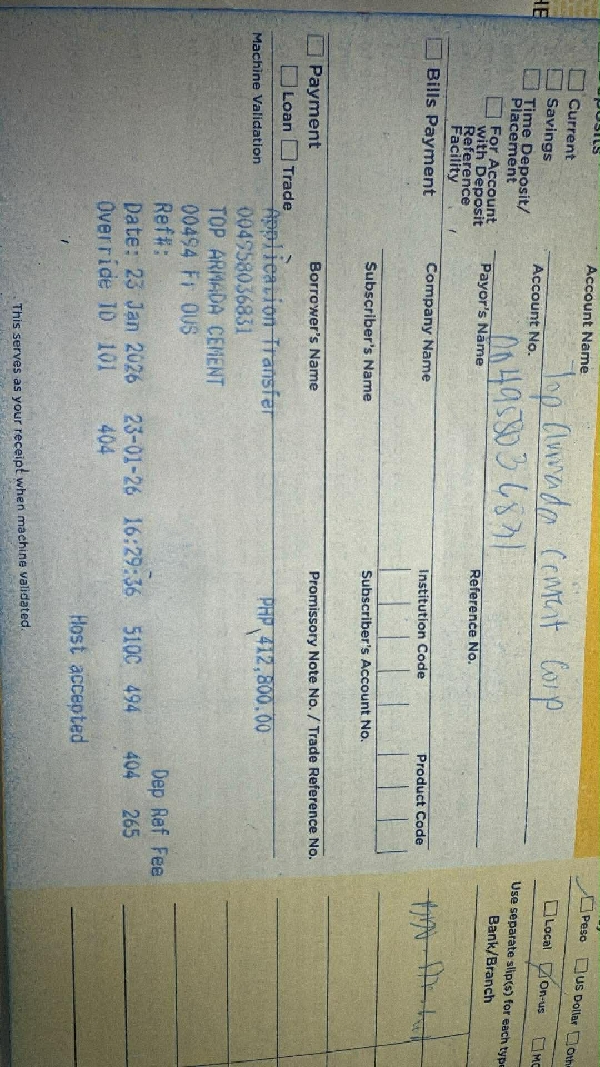 Current
Savings
Time Deposit/
Placement
For Account
with Deposit
Reference
Facility
Account Name
Top Armada Cement Corp
Account No.
004958036831
Payor's Name
Reference No.
Bills Payment
Company Name
Institution Code
Product Code
Subscriber's Name
Subscriber's Account No.
Payment
Loan
Trade
Borrower's Name
Promissory Note No. / Trade Reference No.
Machine Validation
Application Transfer
004958036831 PHP 412,800.00
TOP ARMADA CEMENT
00494 Fr OUS
Ref#: Dep Ref Fee
Date: 23 Jan 2026 23-01-26 16:29:36 510C 494 404 265
Override ID 101 404
Host accepted
This serves as your receipt when machine validated.
Peso
US Dollar
Local
On-us
Use separate slip(s) for each type
Bank/Branch